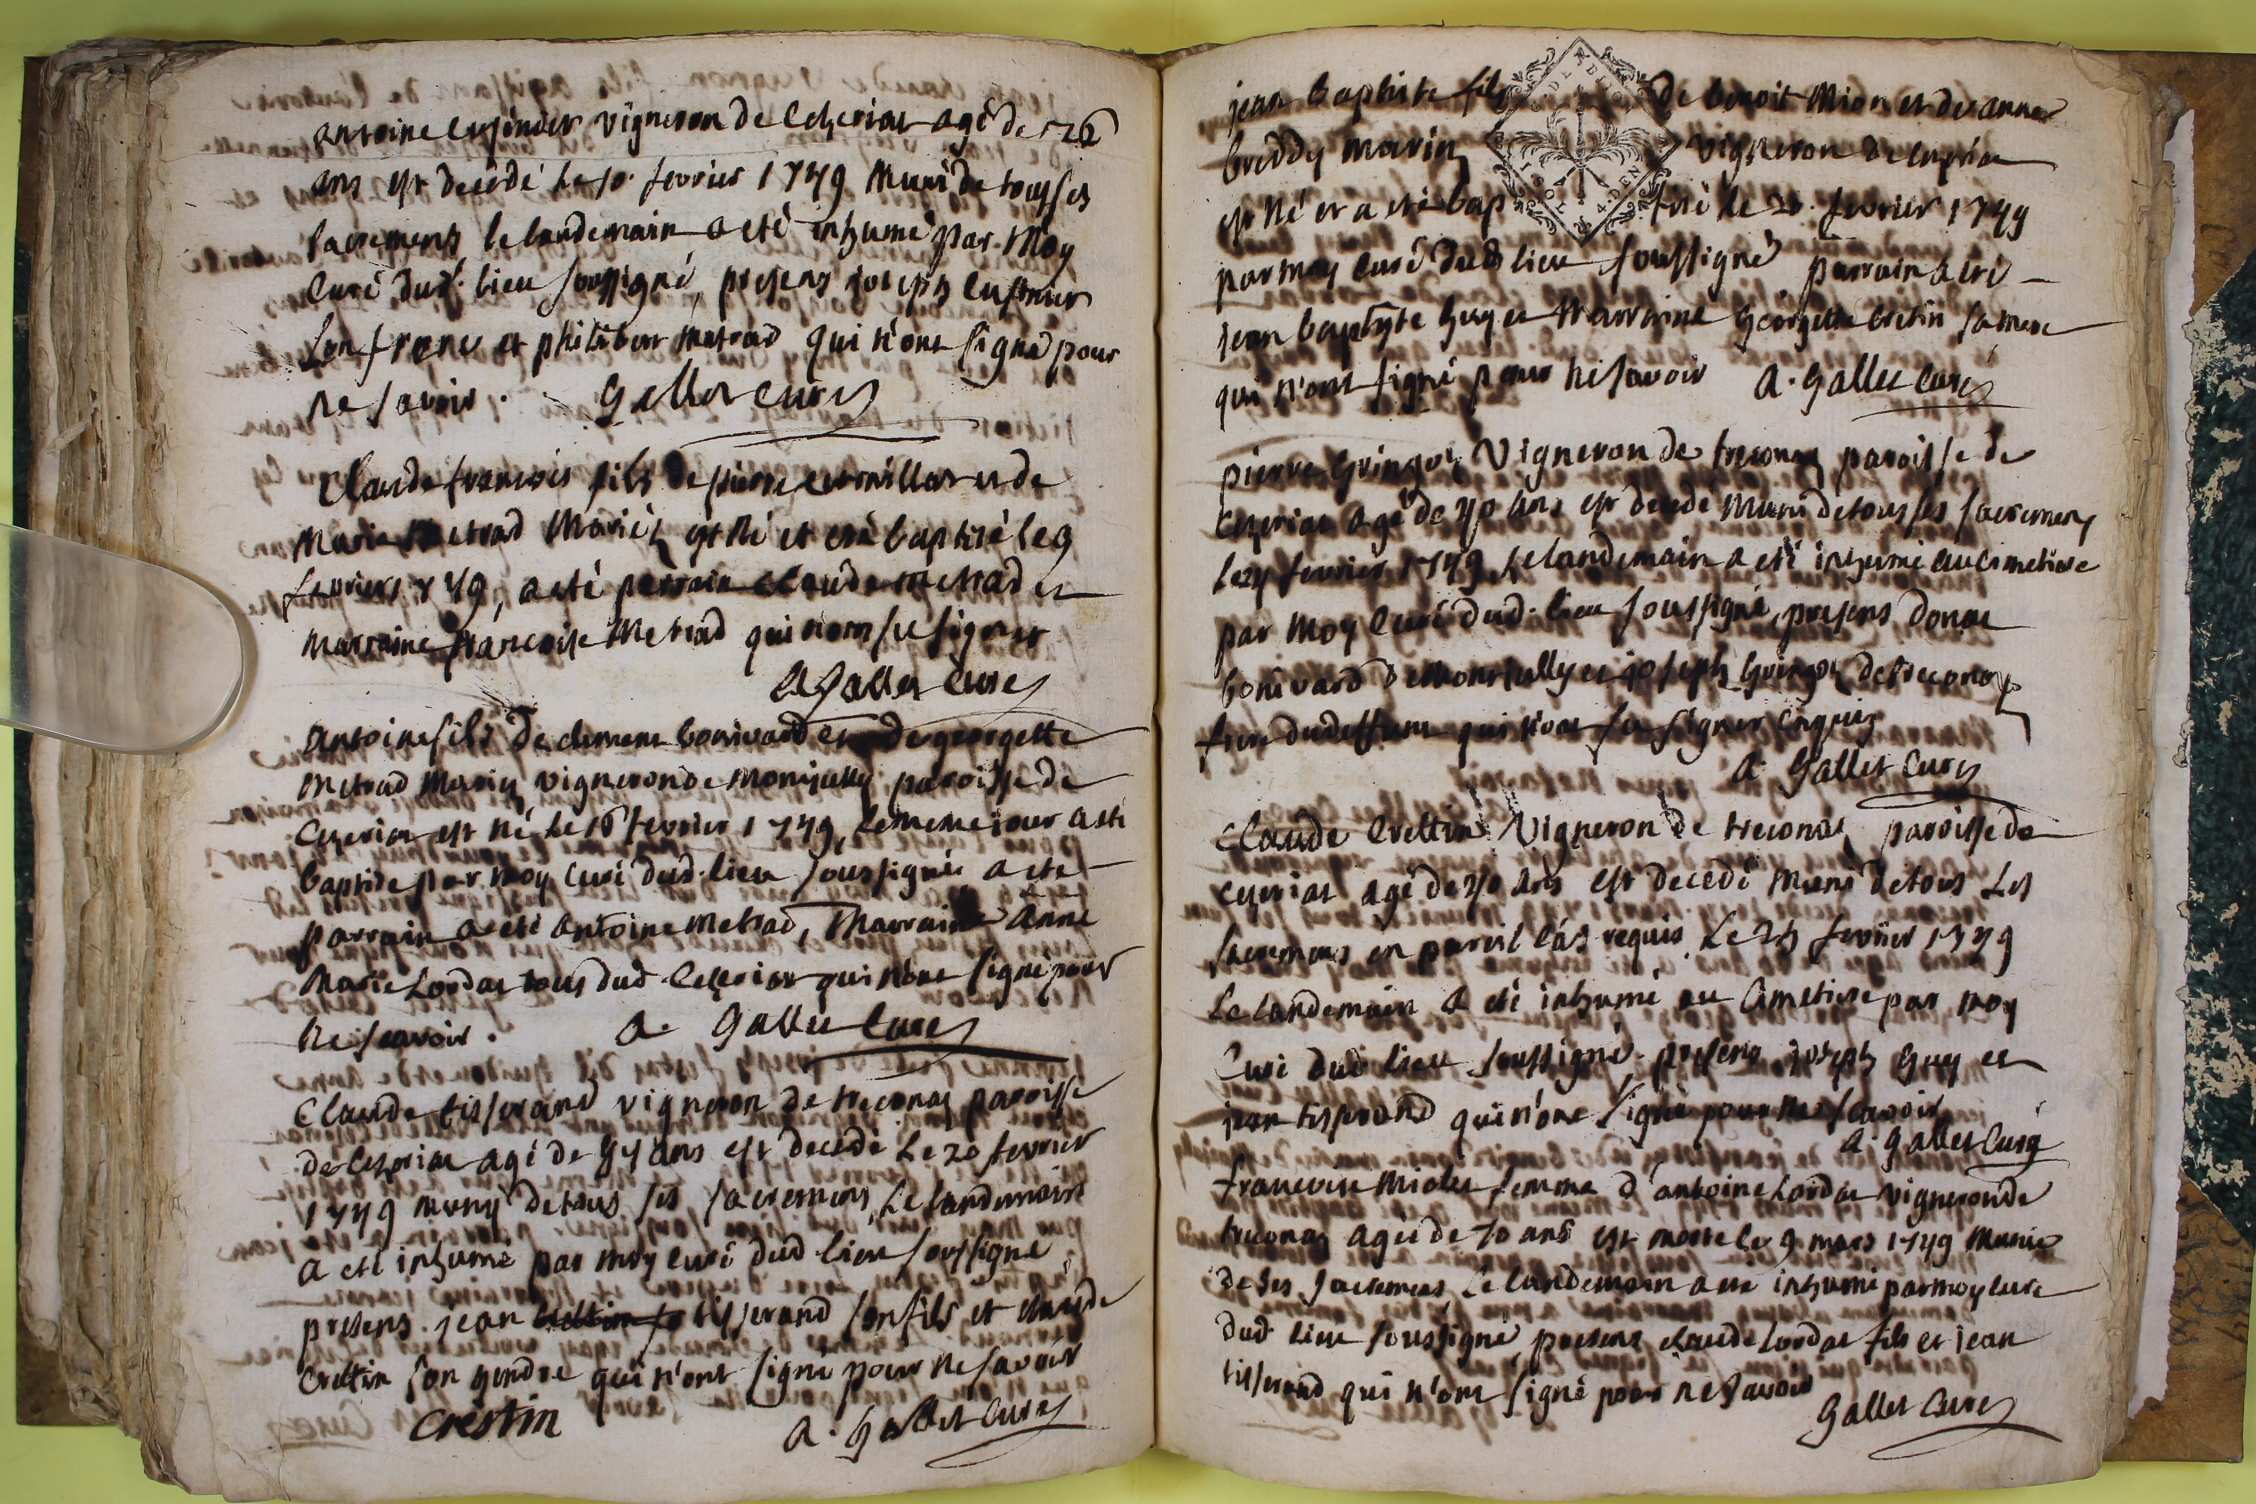 antoine cusinier vigneron de Ceyzeriat agé de 26
ans est decédé le 10. fevrier 1749 Muni de tous ses
sacremens le landemain a eté inhumé par Moy
Curé dud. lieu soussigné, presens joseph
son frere et philibert Metrad qui n'ont signé pour
ne savoir. Gallet Curé
Claude francois fils de pierre et de
Marie Metrad Mariéz est né et eté baptisé le 9
fevrier 1749, a eté parrain Claude Metrad et
marraine francoise Metrad qui n'ont su signer
A Gallet Curé
Antoine fils de clement bonivard et de georgette
Metrad Mariez vigneron de Montjully paroisse de
Ceyzeriat est né le 16 fevrier 1749, le meme jour a eté
baptisé par moy Curé dud. lieu soussigné a eté
parrain a eté antoine Metrad, Marraine Anne
Marie Lordat tous dud Ceyzeriat qui n'ont signé pour
ne scavoir. A. Gallet Curé
Claude tisserand vigneron de treconas paroisse
de Ceyzeriat agé de ans est decedé le 20 fevrier
1749 muny de tous ses sacremens, le landemain
a eté inhumé par moy curé dud lieu soussigné
presens jean tisserand son fils et claude
Crettin son gendre qui n'ont signé pour ne savoir
Crestin A. Gallet Curé
jean baptiste fils de benoit Mion et de anne
mariéz vigneron de
est né et a eté baptisé le 21. fevrier 1749
par moy curé dud lieu soussigné parrain a eté
jean baptiste Guy et Marraine Georgette Cretin sa mere
qui n'ont signé pour ne savoir A. Gallet Curé
pierre vigneron de treconas paroisse de
Ceyzeriat agé de 70 ans est decedé Muni de tous ses sacremens
le 24 fevrier 1749, le landemain a eté inhumé au cimetiere
par Moy Curé dud. lieu soussigné, presens donat
bonivard de Montjully et joseph de treconas
frere du deffunt qui n'ont su signer enquis
A Gallet Curé
Claude Crettin Vigneron de treconas paroisse de
Ceyzeriat agé de 70 ans est decedé Muni de tous les
sacremens en pareil cas requis le 25 fevrier 1749
le landemain a eté inhumé au Cimetiere par moy
Curé dud lieu soussigné presens joseph Guy et
jean tisserand qui n'ont signé pour ne scavoir
A. Gallet Curé
francoise femme d'antoine Lordat vigneron de
treconas agée de 70 ans est morte le 9 mars 1749 Munie
de ses sacremens, le landemain a eté inhumé par moy curé
dud. lieu soussigné, presens claude Lordat fils et jean
tisserand qui n'ont signé pour ne savoir
Gallet Curé